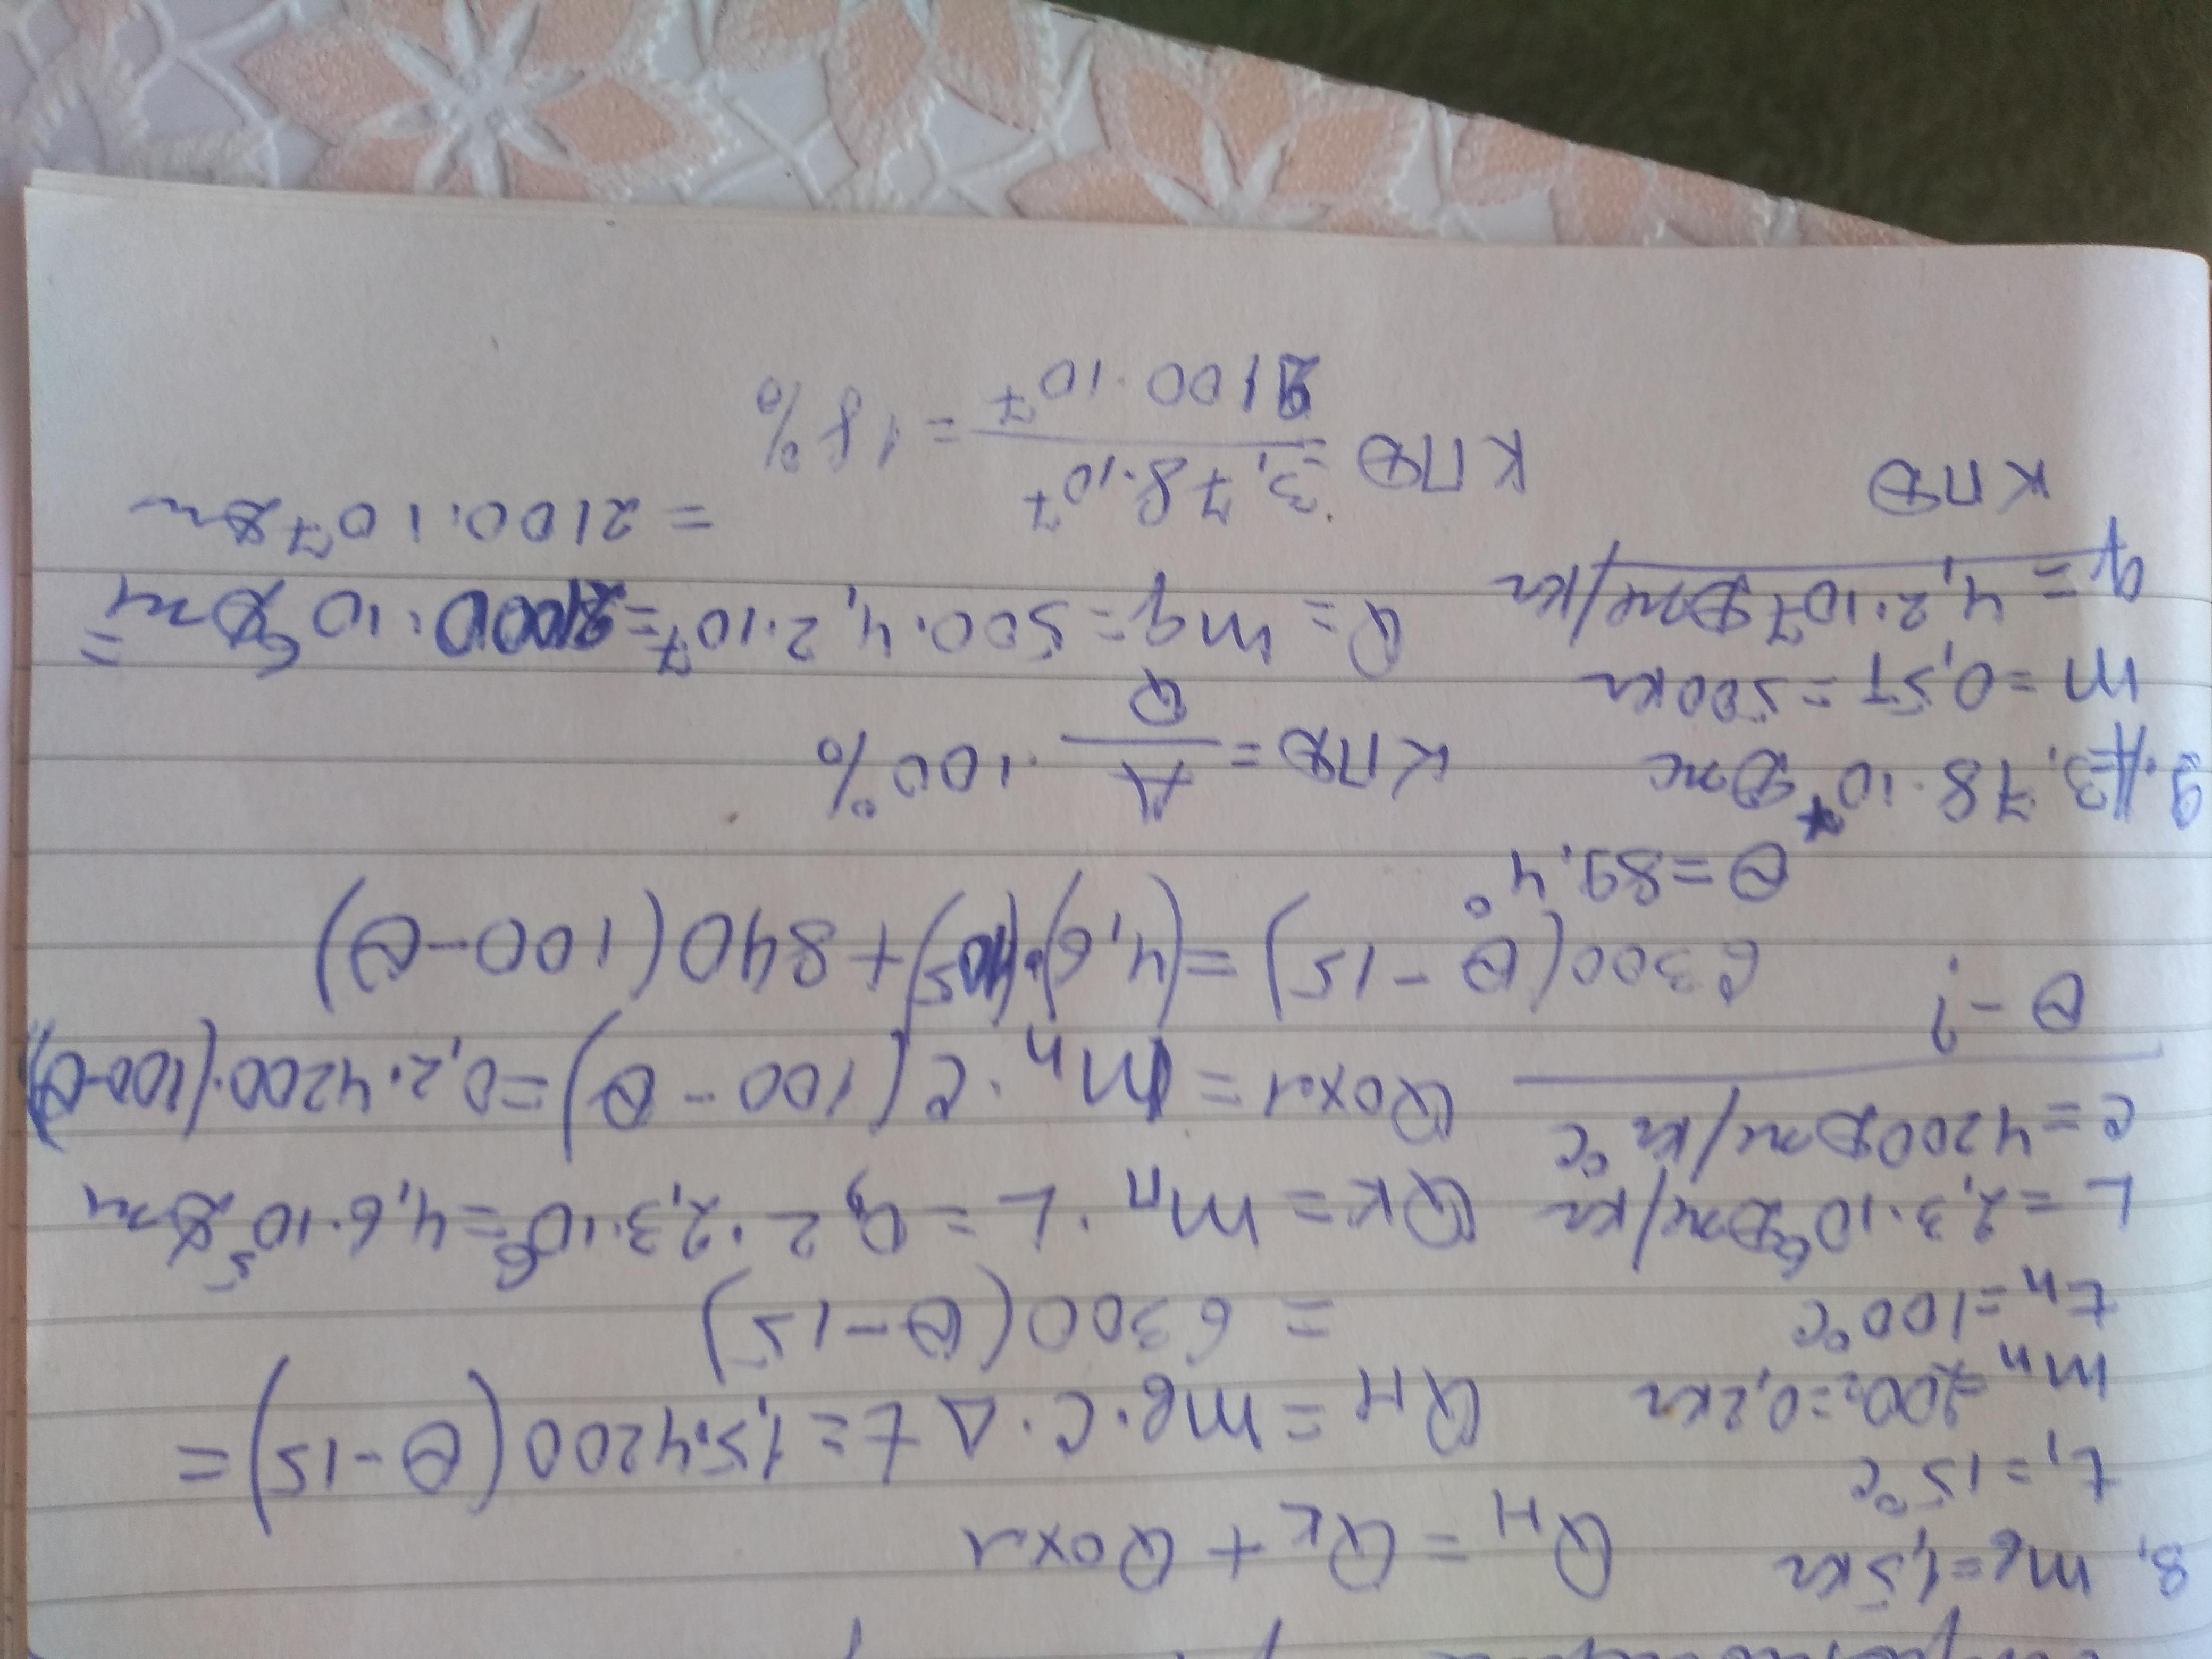 8. mв=1,5кг
t₁=15°C
mп=200г=0,2кг
tп=100°C
L=2,3·10⁶Дж/кг
c=4200Дж/кг°C
θ-?
Qн=Qк+Qохл
Qн=mв·c·Δt=1,5·4200(θ-15)=
=6300(θ-15)
Qк=mп·L=0,2·2,3·10⁶=4,6·10⁵Дж
Qохл=mп·c(100-θ)=0,2·4200·(100-θ)
6300(θ-15)=(4,6)·(10⁵)+840(100-θ)
θ=89,4°
9. A=3,78·10⁷Дж
m=0,5т=500кг
q=4,2·10⁷Дж/кг
КПД
КПД=A/Q·100%
Q=mq=500·4,2·10⁷=21000·10⁶Дж=
=2100·10⁷Дж
КПД=3,78·10⁷/2100·10⁷=18%